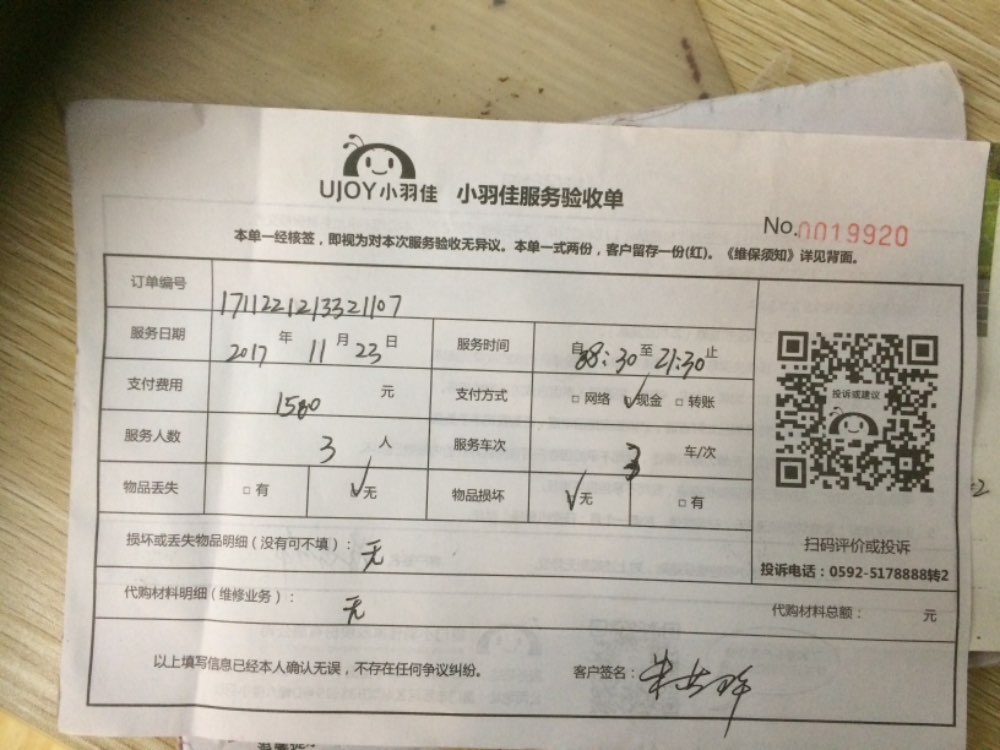 UJOY小羽佳 小羽佳服务验收单
No.0019920
本单一经核签，即视为对本次服务验收无异议。本单一式两份，客户留存一份(红)。《维保须知》详见背面。
订单编号 1711221213321107
服务日期 2017 年 11 月 23 日 服务时间 自 08:30 至 21:30 止
支付费用 1580 元 支付方式 □ 网络 ✓ 现金 □ 转账
服务人数 3 人 服务车次 3 车/次
物品丢失 □ 有 ✓无 物品损坏 ✓无 □ 有
投诉或建议
扫码评价或投诉
投诉电话：0592-5178888转2
损坏或丢失物品明细（没有可不填）： 无
代购材料明细（维修业务）： 无 代购材料总额： 元
以上填写信息已经本人确认无误，不存在任何争议纠纷。 客户签名：